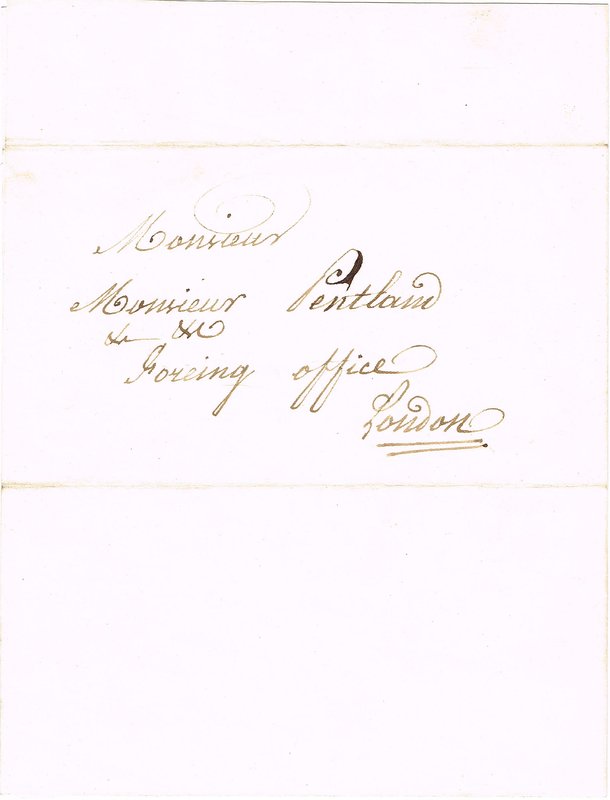 Monsieur
Monsieur Pentland
& &c
Foreing office
London